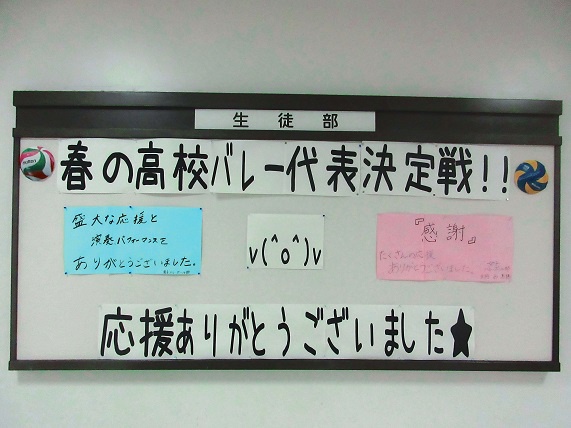 生徒部
春の高校バレー代表決定戦!!
盛大な応援と
演奏パフォーマンスを
ありがとうございました。
v(^o^)v
『感謝』
たくさんの応援
ありがとうございました。
応援ありがとうございました★